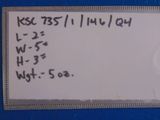 KSC 735/1/146/Q4
L-2"
W-5"
H-3"
Wgt.-5oz.